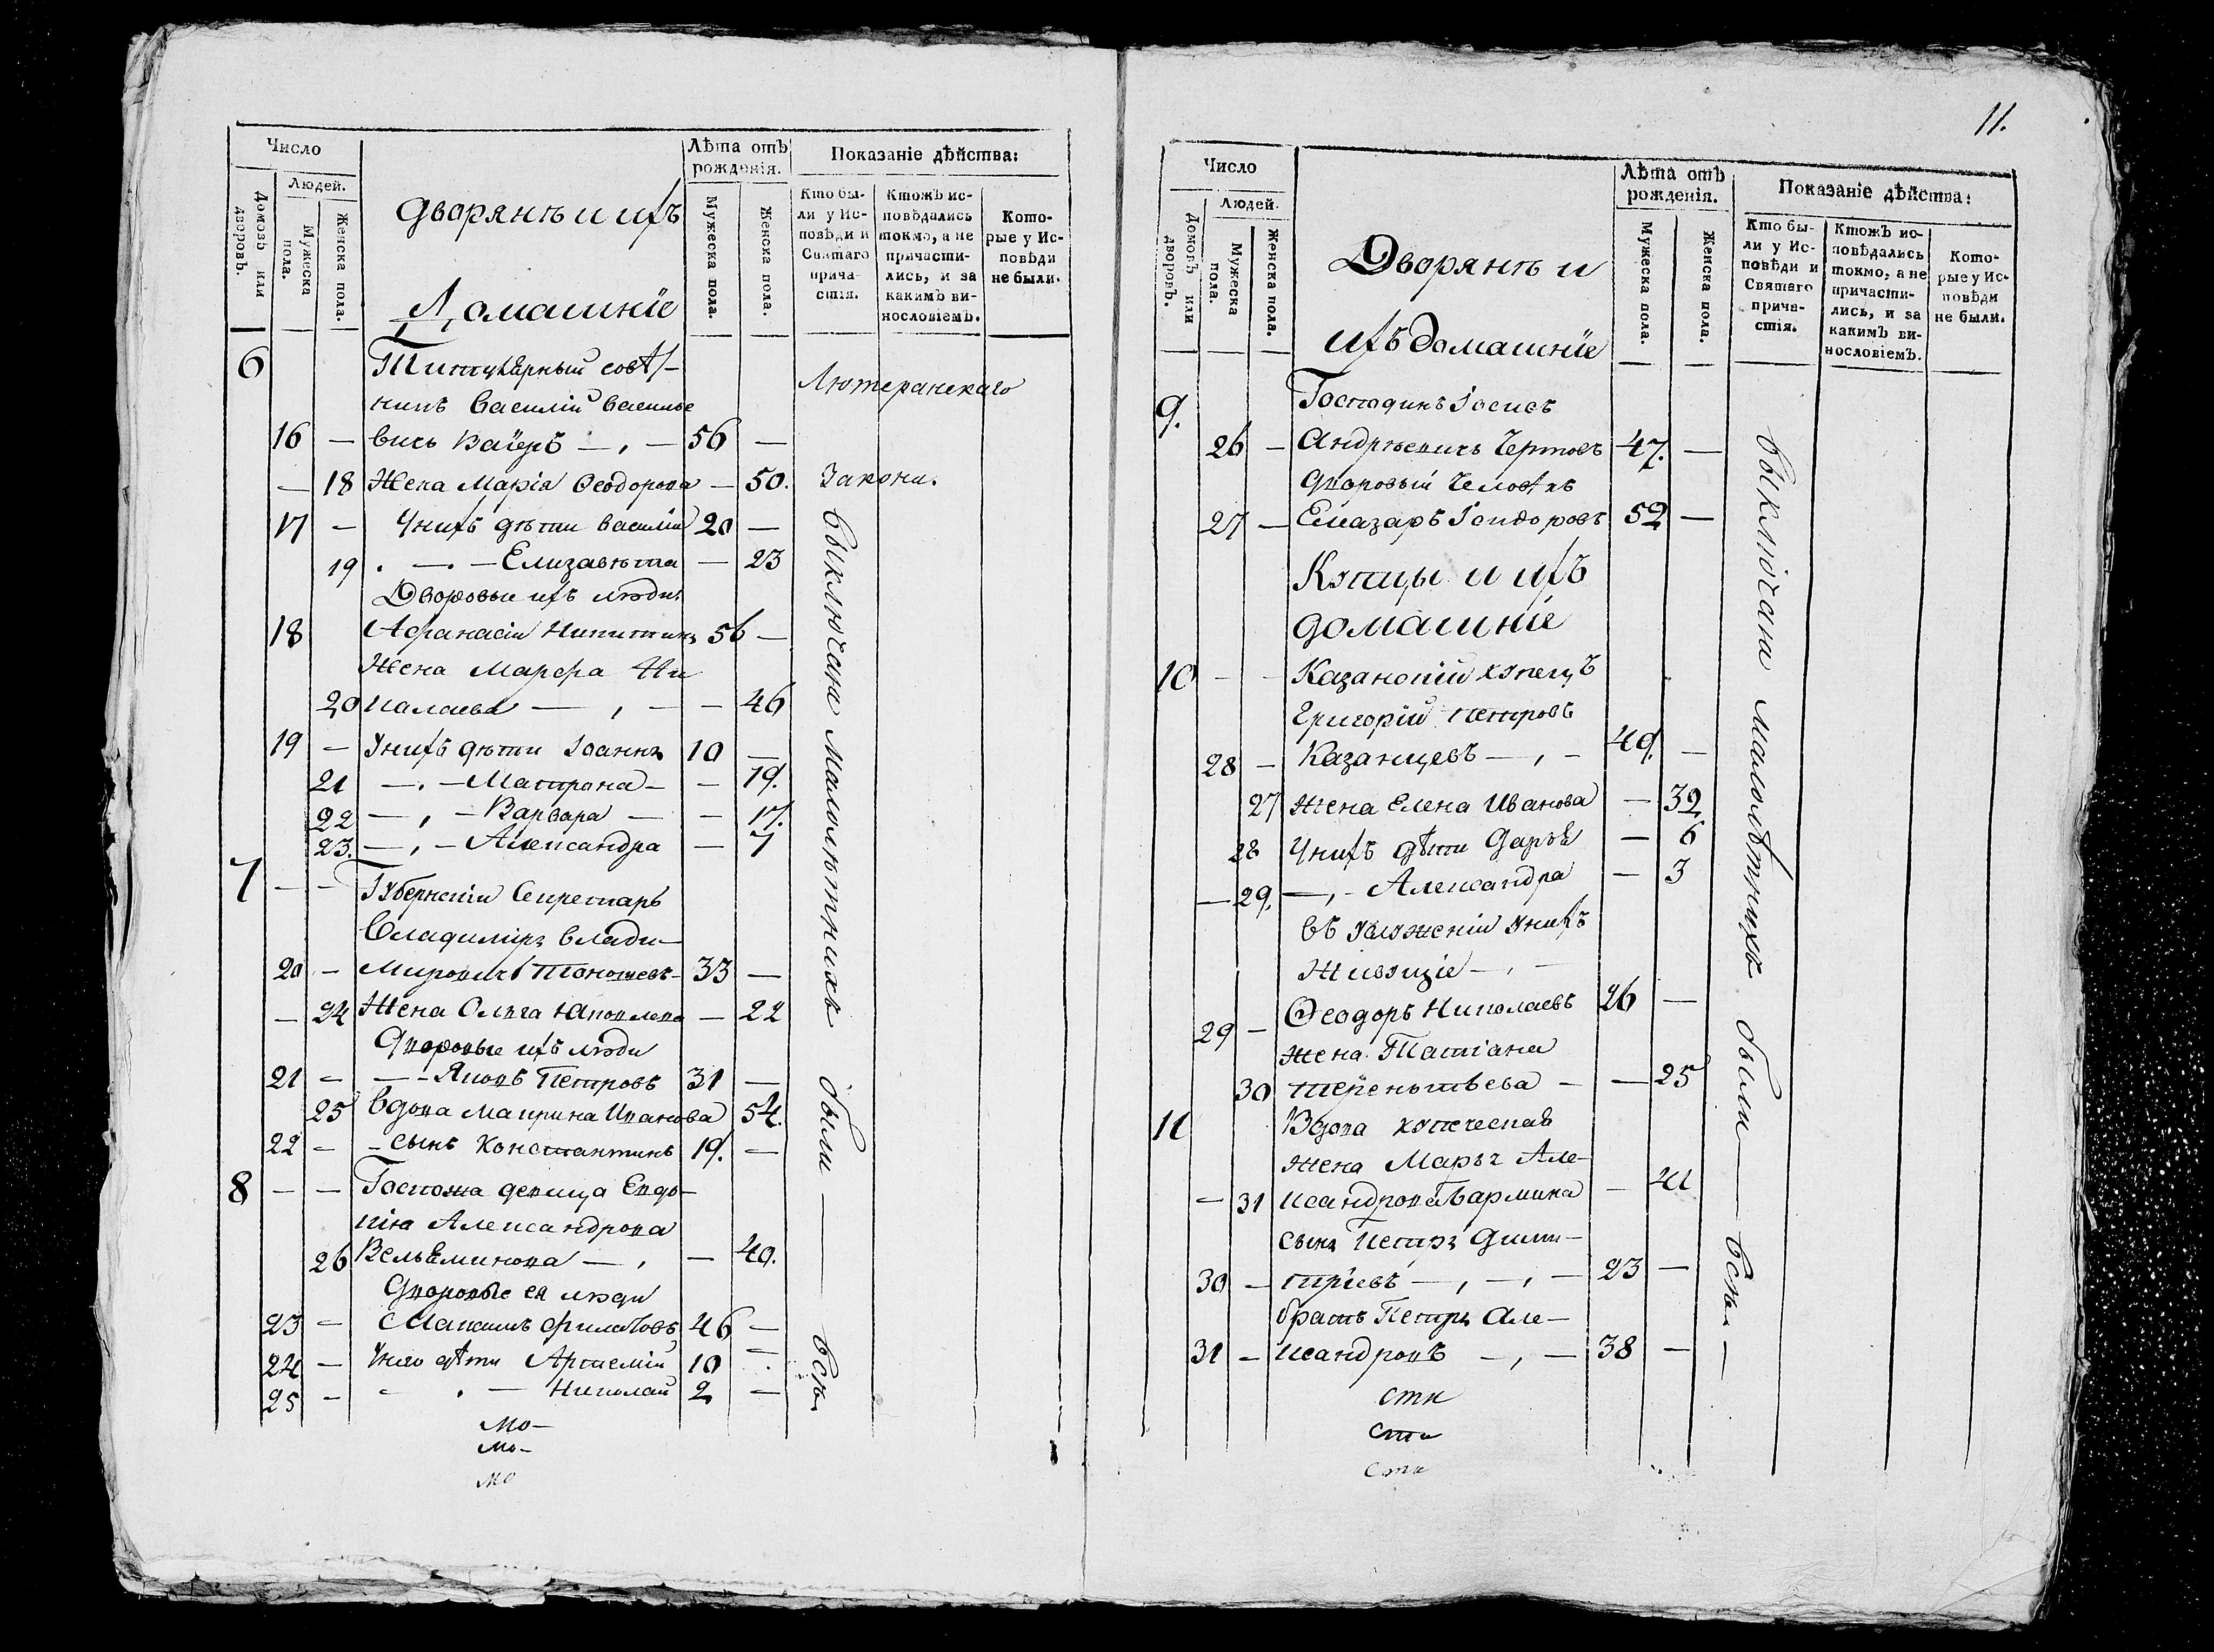 Число
Людей.
Домовъ или дворовъ.
Мужеска пола.
Женска пола.
Дворянъ и ихъ
Домашніе
Лѣта отъ рожденія.
Мужеска пола.
Женска пола.
Показаніе дѣйства:
Кто были у Исповѣди и Святаго причастія.
Ктожъ исповѣдались токмо, а не причастились, и за какимъ винословіемъ.
Которые у Исповѣди не были.
6 Титулярный совѣт-
никъ Василій Василье
16 — вичь — , — 56 —
— 18 Жена Марія Ѳеодорова — 50.
Лютеранскаго
Закона.
17 — Унихъ дѣти Василій 20 —
19 . — . — Елизавѣта — 23
Дворовые ихъ люди
18 Аѳанасій Никитинъ 56 —
Жена Марѳа Ни
20 колаева — , — — 46
19 — Унихъ дѣти Іоаннъ 10 —
21 — . — Матрона — — 19.
22 — , — Варвара — — 17.
23. — , — Александра — 7
7 — — Губернскій Секретарь
Владимиръ Влади—
20 — мировичь — 33 —
— 24 Жена Олга Яковлева — 22
Дворовые ихъ люди
21 — — - Яковъ Петровъ 31 —
25 Вдова Иванова 54.
22 — - сынъ Константинъ 19. —
8 — — Госпожа девица Евдо—
кія Александрова
26 Вельяминова — , — 40.
Дворовые ея люди
23 — Максимъ Филатовъ 46 —
24 — Унего дѣти Артемій 10 —
25 — - . — Николай 2 —
Мо—
Мо—
Мо
выключаи малолѣтнихъ были — всѣ
11.
Число
Людей.
Домовъ или дворовъ.
Мужеска пола.
Женска пола.
Дворянъ и
ихъ домашніе
Лѣта отъ рожденія.
Мужеска пола.
Женска пола.
Показаніе дѣйства:
Кто были у Исповѣди и Святаго причастія.
Ктожъ исповѣдались токмо, а не причастились, и за какимъ винословіемъ.
Которые у Исповѣди не были.
9. Господинъ
26 — Андрѣевичъ Чертовъ 47. —
Дворовый Человѣкъ
27 — Елиазаръ Ісидоровъ 52 —
Купцы и ихъ
домашніе
10 — - Казанскій купецъ
Григорій Петровъ
28 — Казанцевъ — , — 49. —
27 Жена Елена Иванова — 32
28 Унихъ дѣти Дарья — 6
— 29. — , - Александра — 3
въ услуженіи унихъ
Живущіе — , —
29 — Ѳеодоръ Николаевъ 26 —
жена Татіана
30 Терентьева — — 25
11 Вдова купеческая
жена Марья Але—
— 31 ксандрова — 41
сынъ Петръ Дими—
30 — тріевъ — , — , — 23 —
братъ Петръ Але—
31 — ксандровъ — , — 38 —
сти
сти
сти
выключаи малолѣтнихъ были — всѣ —